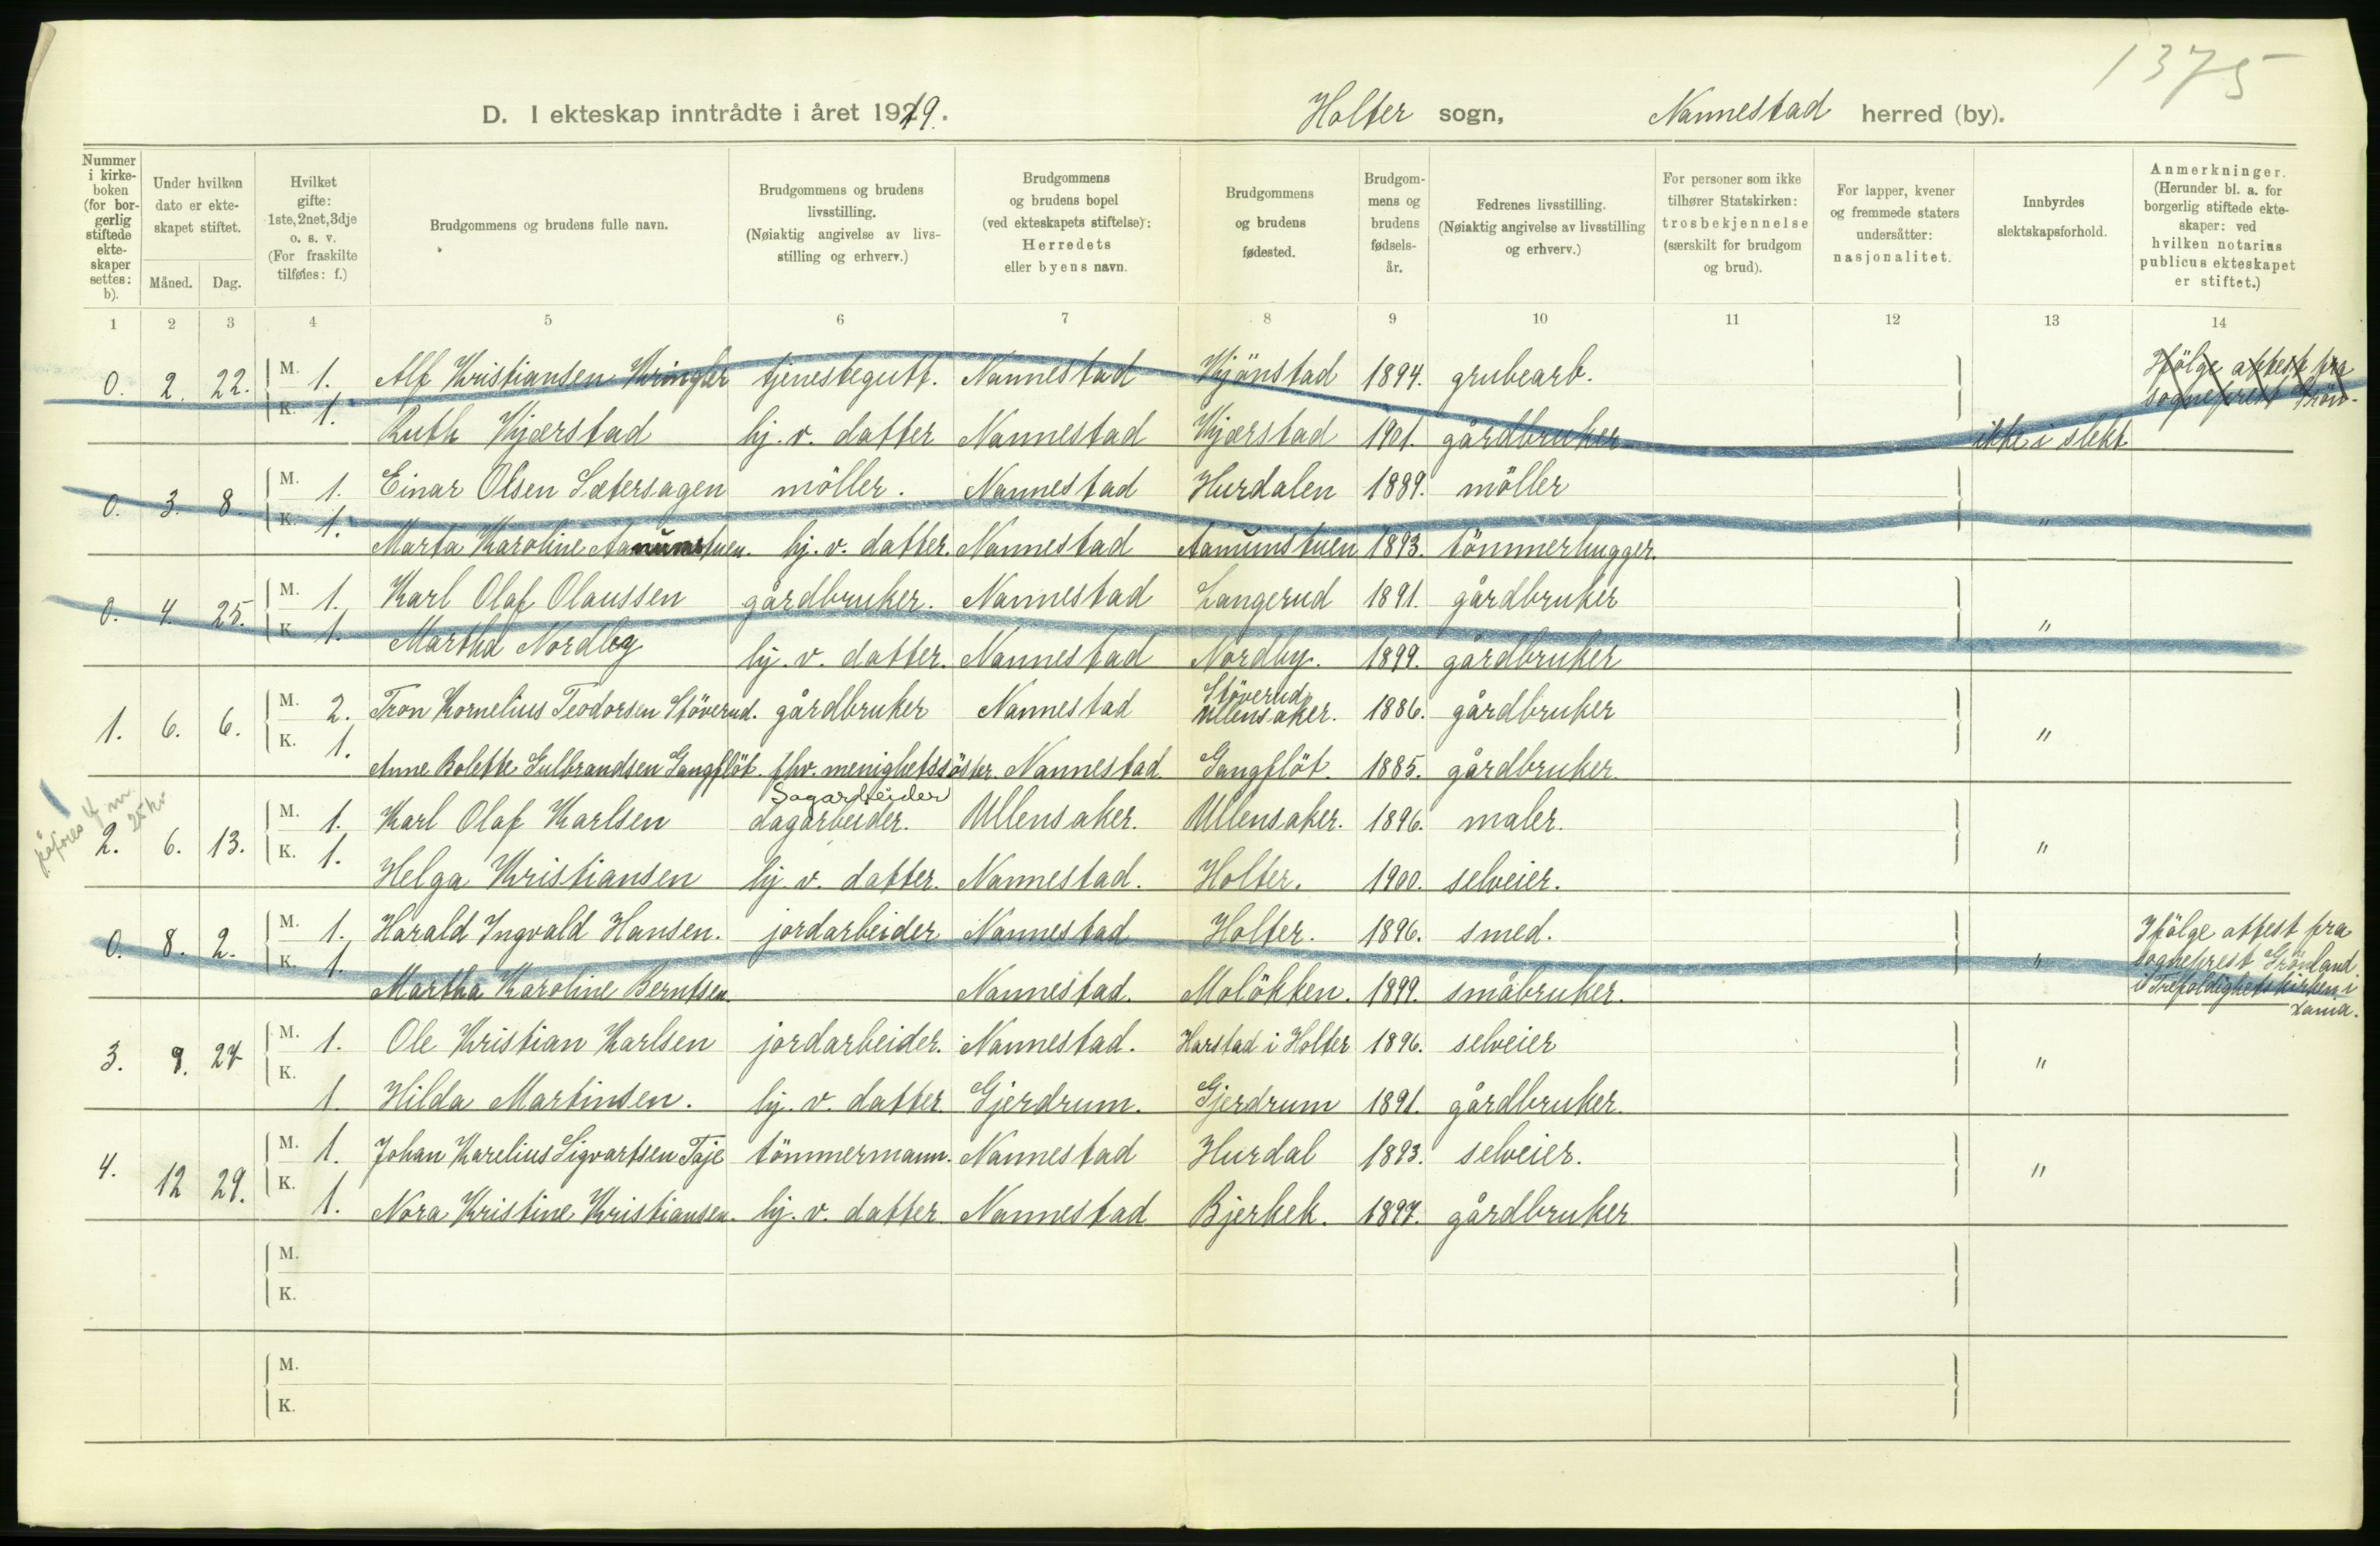 1375
D. I ekteskap inntrådte i året 1919.
Holter sogn, Nannestad herred (by).
Nummer i kirke-boken (for bor-gerlig stiftede ekte-skaper settes: b).
Under hvilken dato er ekte-skapet stiftet.
Måned. Dag.
Hvilket gifte: 1ste, 2net, 3dje o. s. v. (For fraskilte tilføies: f.)
Brudgommens og brudens fulle navn.
Brudgommens og brudens livsstilling. (Nøiaktig angivelse av livs-stilling og erhverv.)
Brudgommens og brudens bopel (ved ekteskapets stiftelse): Herredets eller byens navn.
Brudgommens og brudens fødested.
Brudgom-mens og brudens fødsels-år.
Fedrenes livsstilling. (Nøiaktig angivelse av livsstilling og erhverv.)
For personer som ikke tilhører Statskirken: trosbekjennelse (særskilt for brudgom og brud).
For lapper, kvener og fremmede staters undersåtter: nasjonalitet.
Innbyrdes slektskapsforhold.
Anmerkninger. (Herunder bl. a. for borgerlig stiftede ekte-skaper: ved hvilken notarius publicus ekteskapet er stiftet.)
1 2 3 4 5 6 7 8 9 10 11 12 13 14
0. 2. 22. M. 1. Alf Kristiansen Kringler tjenestegutt. Nannestad Kjönstad 1894. grubearb. Ifölge attest fra sogneprest Grön-
K. 1. Ruth Kjærstad hj. v. datter Nannestad Kjærstad 1901. gårdbruker ikke i slekt
0. 3. 8. M. 1. Einar Olsen Sætersagen möller. Nannestad Hurdalen 1889. möller
K. 1. Marta Karoline Aamunstuen. hj. v. datter. Nannestad Aamunstuen 1893. tömmerhugger. "
0. 4. 25. M. 1. Karl Olaf Olaussen gårdbruker. Nannestad Langerud 1891. gårdbruker
K. 1. Martha Nordby hj. v. datter. Nannestad Nordby. 1899. gårdbruker "
1. 6. 6. M. 2. Tron Kornelius Teodorsen Stöverud. gårdbruker Nannestad Stöverud Ullensaker. 1886. gårdbruker
K. 1. Anne Bolette Gulbrandsen Gangflöt. fhv. menighetssöster. Nannestad. Gangflöt. 1885. gårdbruker. "
påføres
25 kr
Sagarbeider
2. 6. 13. M. 1. Karl Olaf Karlsen dagarbeider. Ullensaker. Ullensaker. 1896. maler.
K. 1. Helga Kristiansen hj. v. datter. Nannestad. Holter. 1900. selveier. "
0. 8. 2. M. 1. Harald Ingvald Hansen. jordarbeider Nannestad Holter. 1896. smed. Ifölge attest fra sogneprest Grönland
K. 1. Martha Karoline Berntsen. Nannestad. Molökken. 1899. småbruker. " i Trefoldighetskirken i Xania.
3. 9. 27 M. 1. Ole Kristian Karlsen jordarbeider. Nannestad. Harstad i Holter 1896. selveier
K. 1. Hilda Martinsen. hj. v. datter. Gjerdrum. Gjerdrum 1891. gårdbruker. "
4. 12 29. M. 1. Johan Karelius Sigvartsen Taje tömmermann. Nannestad Hurdal 1893. selveier.
K. 1. Nora Kristine Kristiansen. hj. v. datter. Nannestad Bjerkek. 1897. gårdbruker "
M.
K.
M.
K.